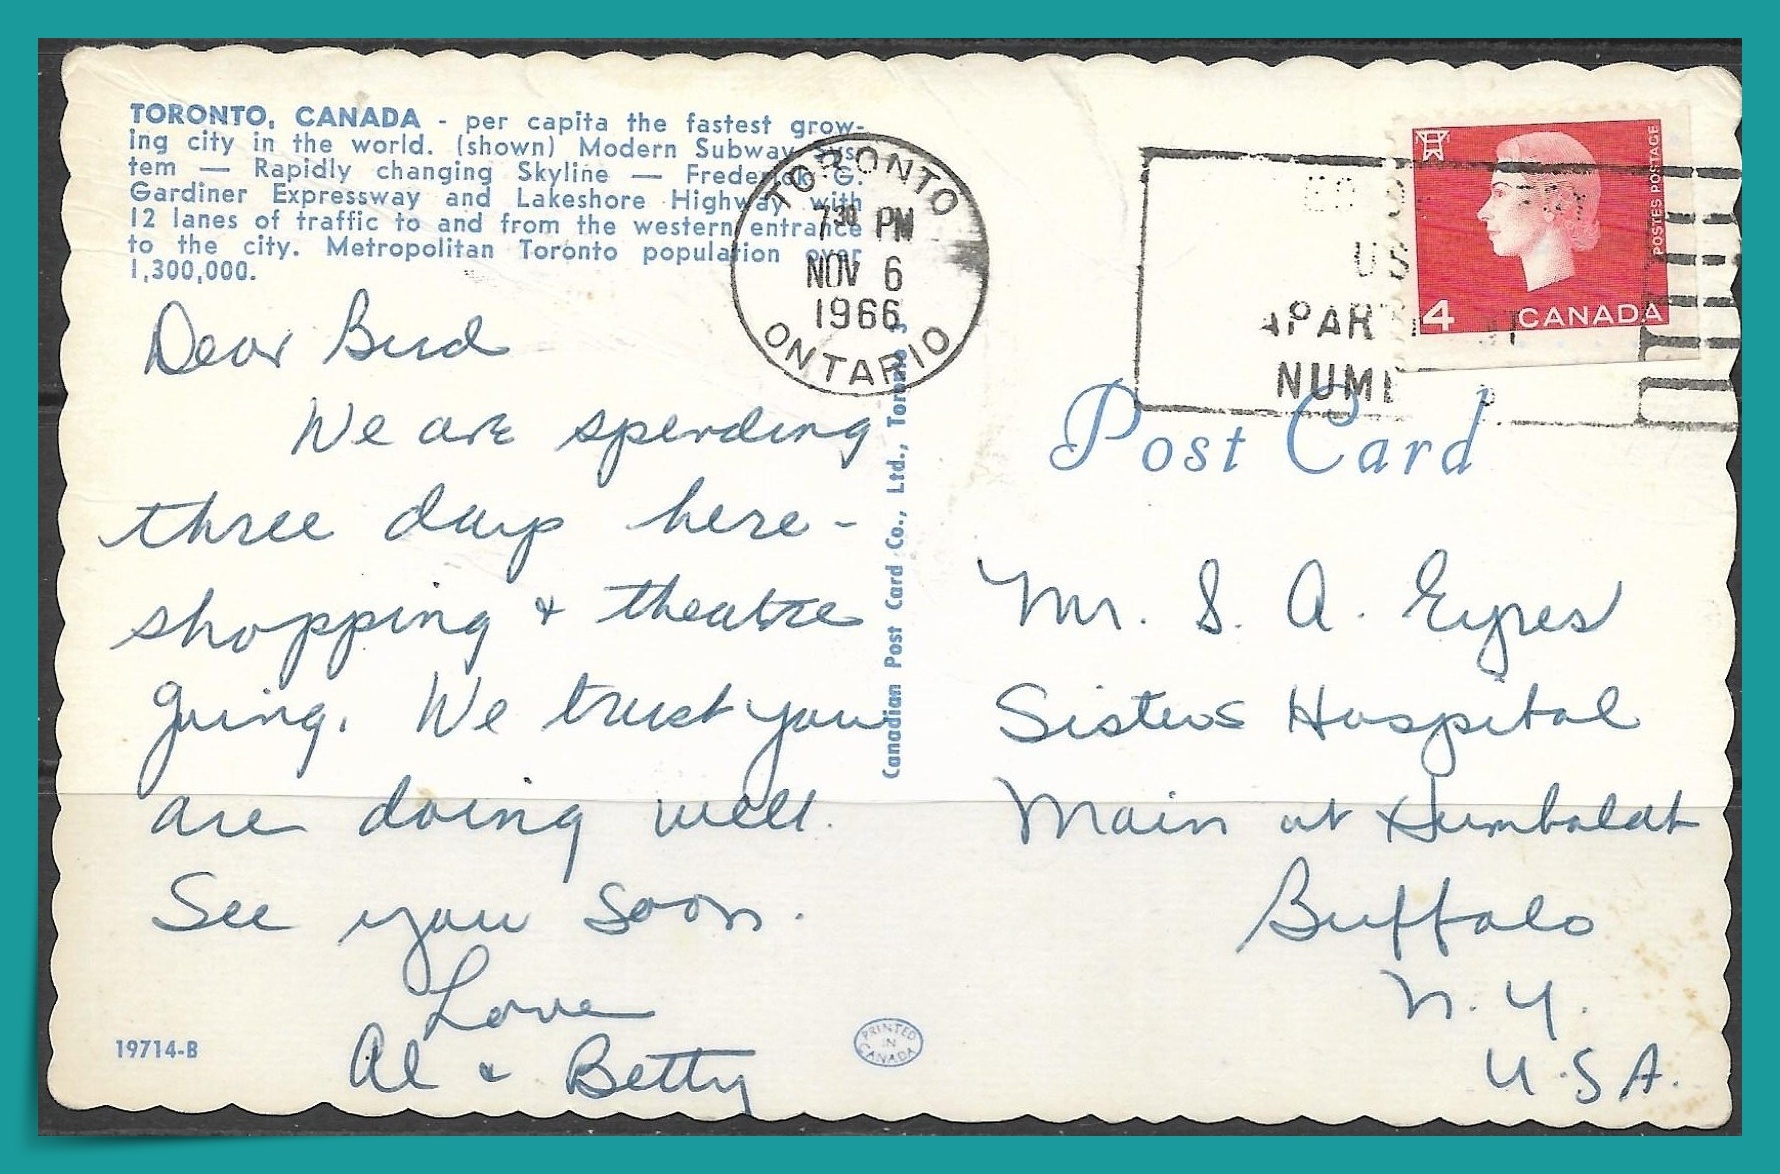 TORONTO, CANADA - per capita the fastest grow-
ing city in the world. (shown) Modern Subway Sys-
tem — Rapidly changing Skyline — Frederick G.
Gardiner Expressway and Lakeshore Highway with
12 lanes of traffic to and from the western entrance
to the city. Metropolitan Toronto population over
1,300,000.
Dear Bud
We are spending
three days here -
shopping & theatre
going. We trust you
are doing well.
See you soon.
Love
Al & Betty
19714-B
TORONTO
7 30 PM
NOV 6
1966
ONTARIO
Canadian Post Card Co., Ltd., Toronto
PRINTED
IN
CANADA
US
APAR
NUM
POSTES POSTAGE
4 CANADA
Post Card
Mr. S. A. Eyres
Sisters Hospital
Main at Humboldt
Buffalo
N. Y.
U.S.A.